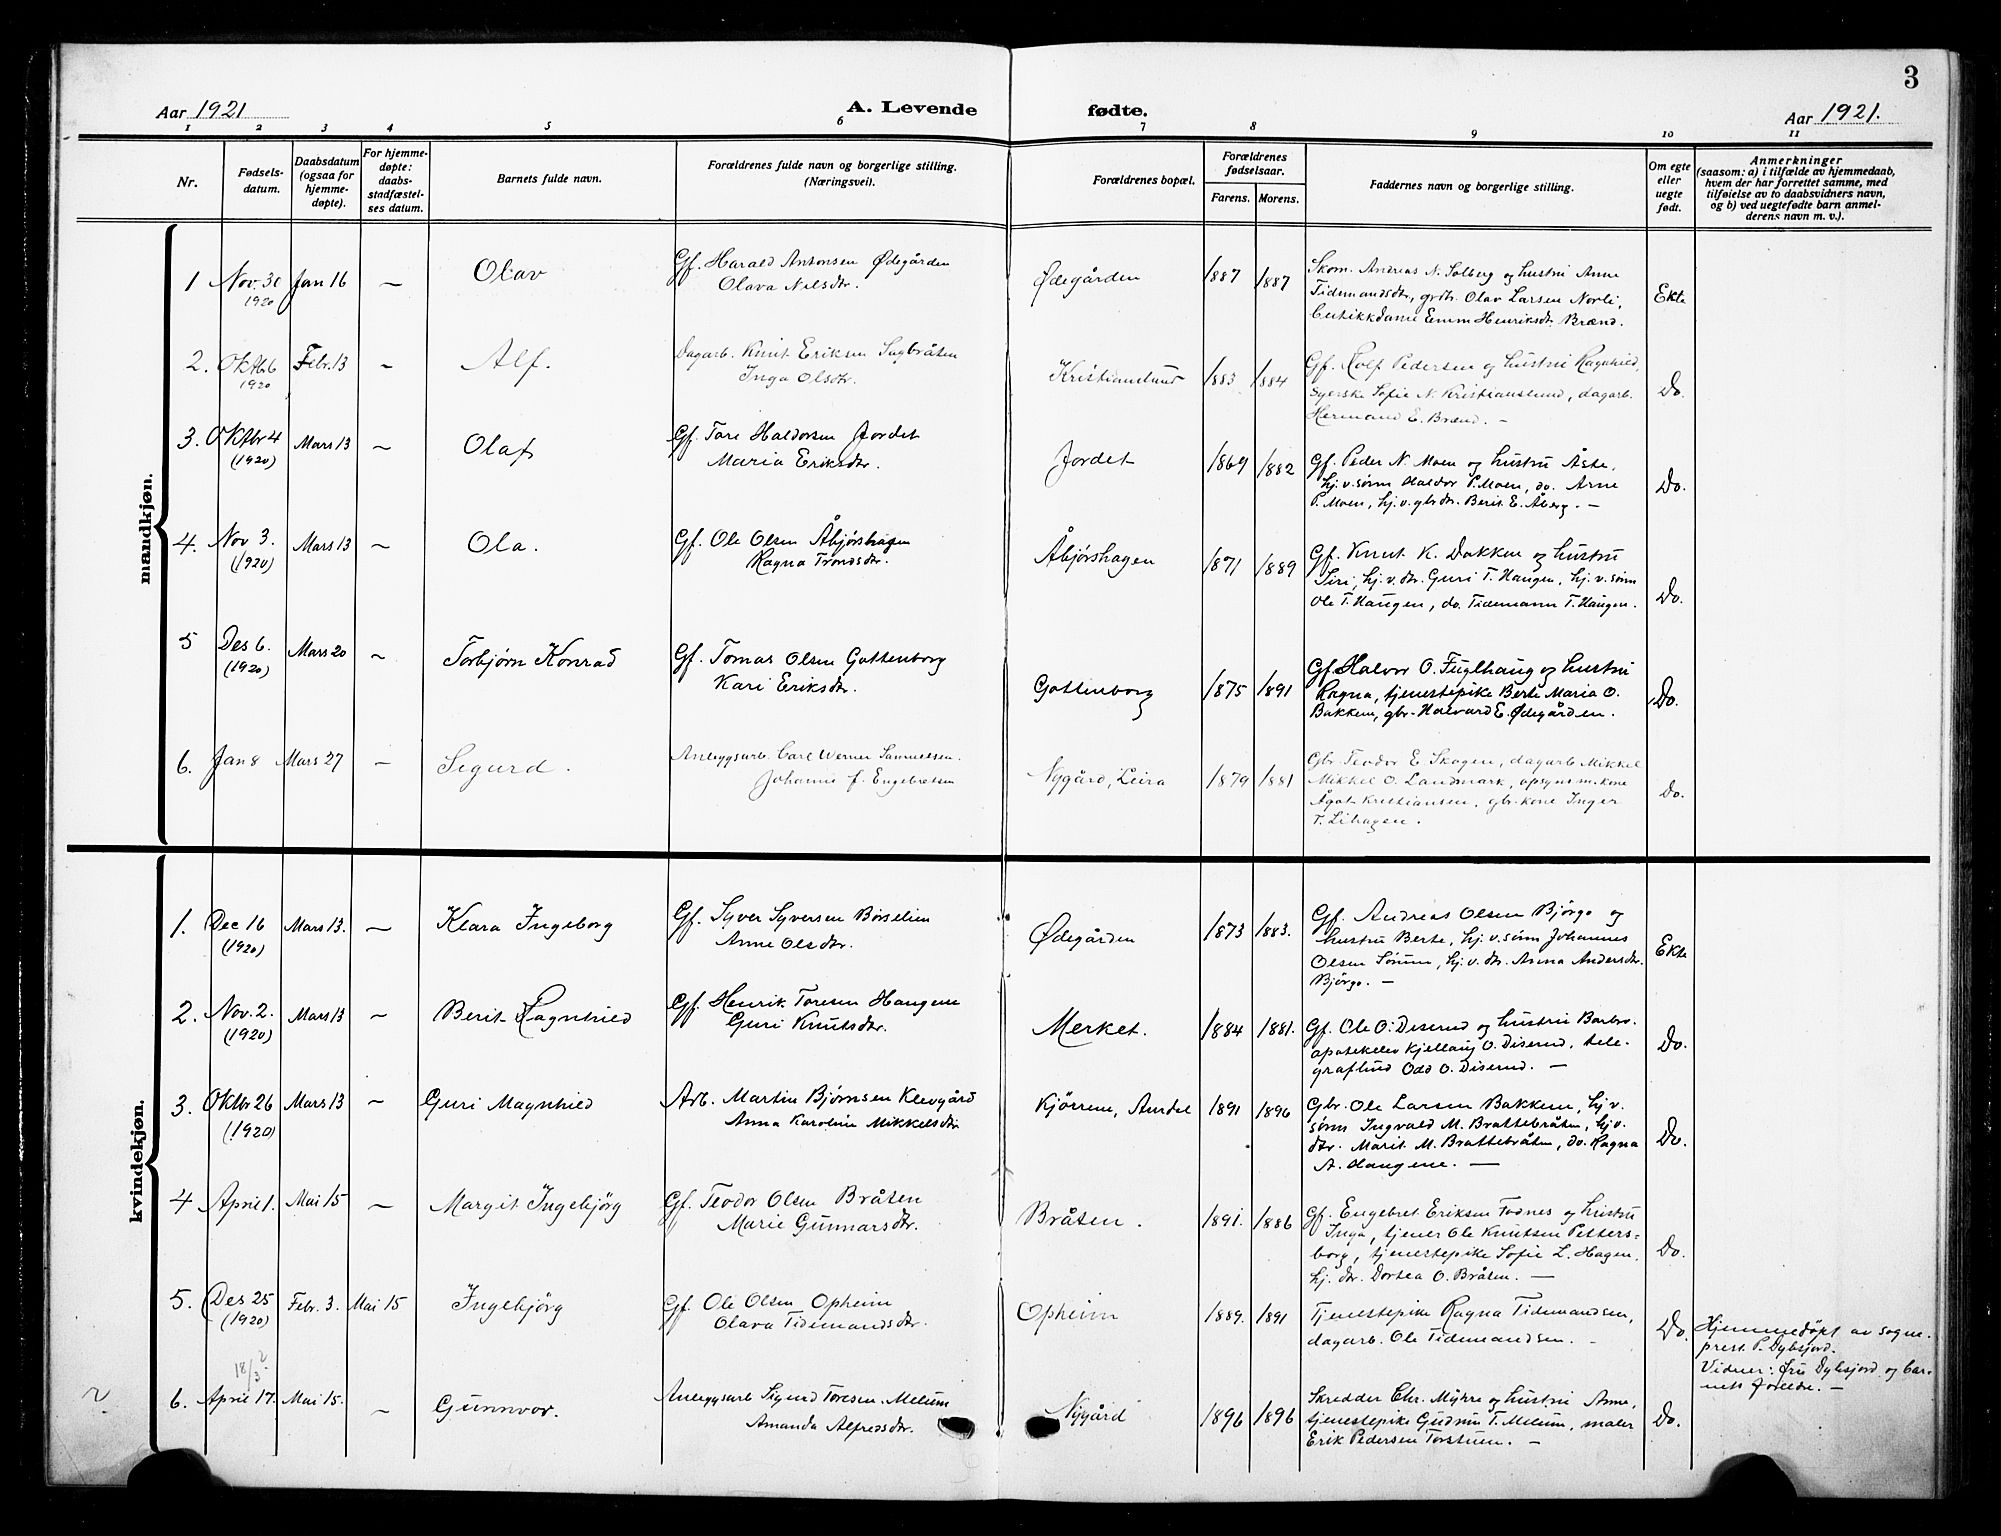 3
Aar 1921
A. Levende
fødte.
Aar 1921.
1 2 3 4 5 6 7 8 9 10 11
Nr.
Fødsels-
datum.
Daabsdatum
(ogsaa for
hjemme-
døpte).
For hjemme-
døpte:
daabs-
stadfæstel-
ses datum.
Barnets fulde navn.
Forældrenes fulde navn og borgerlige stilling.
(Næringsvei).
Forældrenes bopæl.
Forældrenes
fødselsaar.
Farens. Morens.
Faddernes navn og borgerlige stilling.
Om egte
eller
uegte
født.
Anmerkninger
(saasom: a) i tilfælde av hjemmedaab,
hvem der har forrettet samme, med
tilføielse av to daabsvidners navn,
og b) ved uegtefødte barn anmel-
derens navn m. v.).
mandkjøn.
1 Nov. 30 1920 Jan 16 – Olav
Gf. Harald Antonsen Ødegården
Olava Nilsdtr.
Ødegården 1887 1887
Skom. Andreas N. Solberg og hustru Anne
Tidemandsdtr, grdbr. Olav Larsen Norli,
butikkdame Emm Henriksdtr. Brænd.
Ekte
2. Oktb. 6 1920 Febr. 13 – Alf.
Dagarb. Knut Eriksen
Inga Olsdtr.
Kristianslund 1883 1884
Gf. Rolf Pedersen og hustru Ragnhild,
syerske Sofie N. Kristianslund, dagarb.
Hermand E. Brænd. –
Do.
3. Oktbr 4 (1920) Mars 13 – Olaf
Gf. Tore Haldorsen Jordet
Maria Eriksdtr.
Jordet 1869 1882
Gf. Peder N. Moen og hustru Åste,
hj. v. sønn Haldor P. Moen, do. Arne
P. Moen, hj. v. gbr dtr. Berit E. Åberg. –
Do.
4. Nov 3. (1920) Mars 13 – Ola.
Gf. Ole Olsen Åbjørshagen
Ragna Trondsdtr.
Åbjørshagen 1871 1889
Gf. Knut K. Dokken og hustru
Siri, hj. v. dtr. Guri T. Haugen, hj. v. sønn
Ole T. Haugen, do. Tidemann T. Haugen.
Do.
5 Des 6. (1920) Mars 20 – Torbjørn Konrad
Gf. Tomas Olsen Gottenborg
Kari Eriksdtr.
Gottenborg 1875 1891
Gf. Halvor O. Fuglhaug og hustru
Ragna, tjenestepike Berte Maria O.
Bakken, gbr. Havard E. Ødegården.
Do.
6. Jan 8 Mars 27 – Sigurd.
Anleggsarb. Carl Werner Samuelsen.
Johanne f. Engebretsen
Nygård, Leira 1879 1881
Gbr. Teodor E. Skogen, dagarb Mikkel
Mikkel O. Landmark, opsynsm. kone
Ågot Kristiansen, gbr. kone Inger
T. Lihagen.
Do.
kvindekjøn.
1. Dec 16 (1920) Mars 13. – Klara Ingeborg
Gf. Syver Syversen Børselien
Anne Olsdtr.
Ødegården 1873 1883.
Gf. Andreas Olsen Bjørgo og
hustru Berte, hj. v. sønn Johannes
Olsen Sørum, hj. v. dtr. Anna Andersdtr.
Bjørgo. –
Ekte
2. Nov. 2. (1920) Mars 13 – Berit Ragnhild
Gf. Henrik Toresen Haugene
Guri Knutsdtr.
Merket. 1884 1881.
Gf. Ole O. Diserud og hustru Barbro.
apotekelev Kjellaug O. Diserud, tele-
graflind Odd O. Diserud. –
Do.
3. Oktbr 26 (1920) Mars 13 – Guri Magnhild
Arb. Martin Bjørnsen Klevgård
Anna Karoline Mikkelsdtr
Kjørrem, Aurdal 1891 1896
Gbr. Ole Larsen Bakken, hj. v.
sønn Ingvald M. Brattebråten, hj. v.
dtr. Marit M. Brattebråten, do. Ragna
A. Haugene. –
Do.
4 April 1. Mai 15 – Margit Ingebjørg
Gf. Teodor Olsen Bråten
Marie Gunnarsdtr.
Bråten. 1891. 1886
Gf. Engebret Eriksen Fodnes og hustru
Inga, tjener Ole Knutsen Petters-
borg, tjenestepike Sofie L. Hagen,
hj. dtr. Dortea O. Bråten. –
Do.
5. Des 25 (1920) Febr. 3. Mai 15 Ingebjørg
Gf. Ole Olsen Opheim
Olava Tidemandsdtr.
Opheim 1889. 1891
Tjenestepike Ragna Tidemandsen,
dagarb. Ole Tidemandsen. –
Do.
Hjemmedøpt av sogne-
prest P. Dybsjord.
Vidner: fru Dybsjord og bar-
nets foreldre. –
18/3 ?
6. April 17. Mai 15. – Gunnvor.
Anleggsarb Sigurd Toresen Melum
Amanda Alfredsdtr.
Nygård 1896 1896
Skredder Chr. Myhre og hustru Anne,
tjenestepike Gudrun T. Melum, maler
Erik Pedersen Torstuen. –
Do.